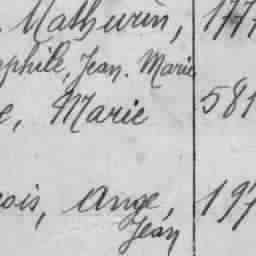 . Mathurin, 177
ophile, Jean. Marie
e, Marie 581
cois, Ange, 197
Jean